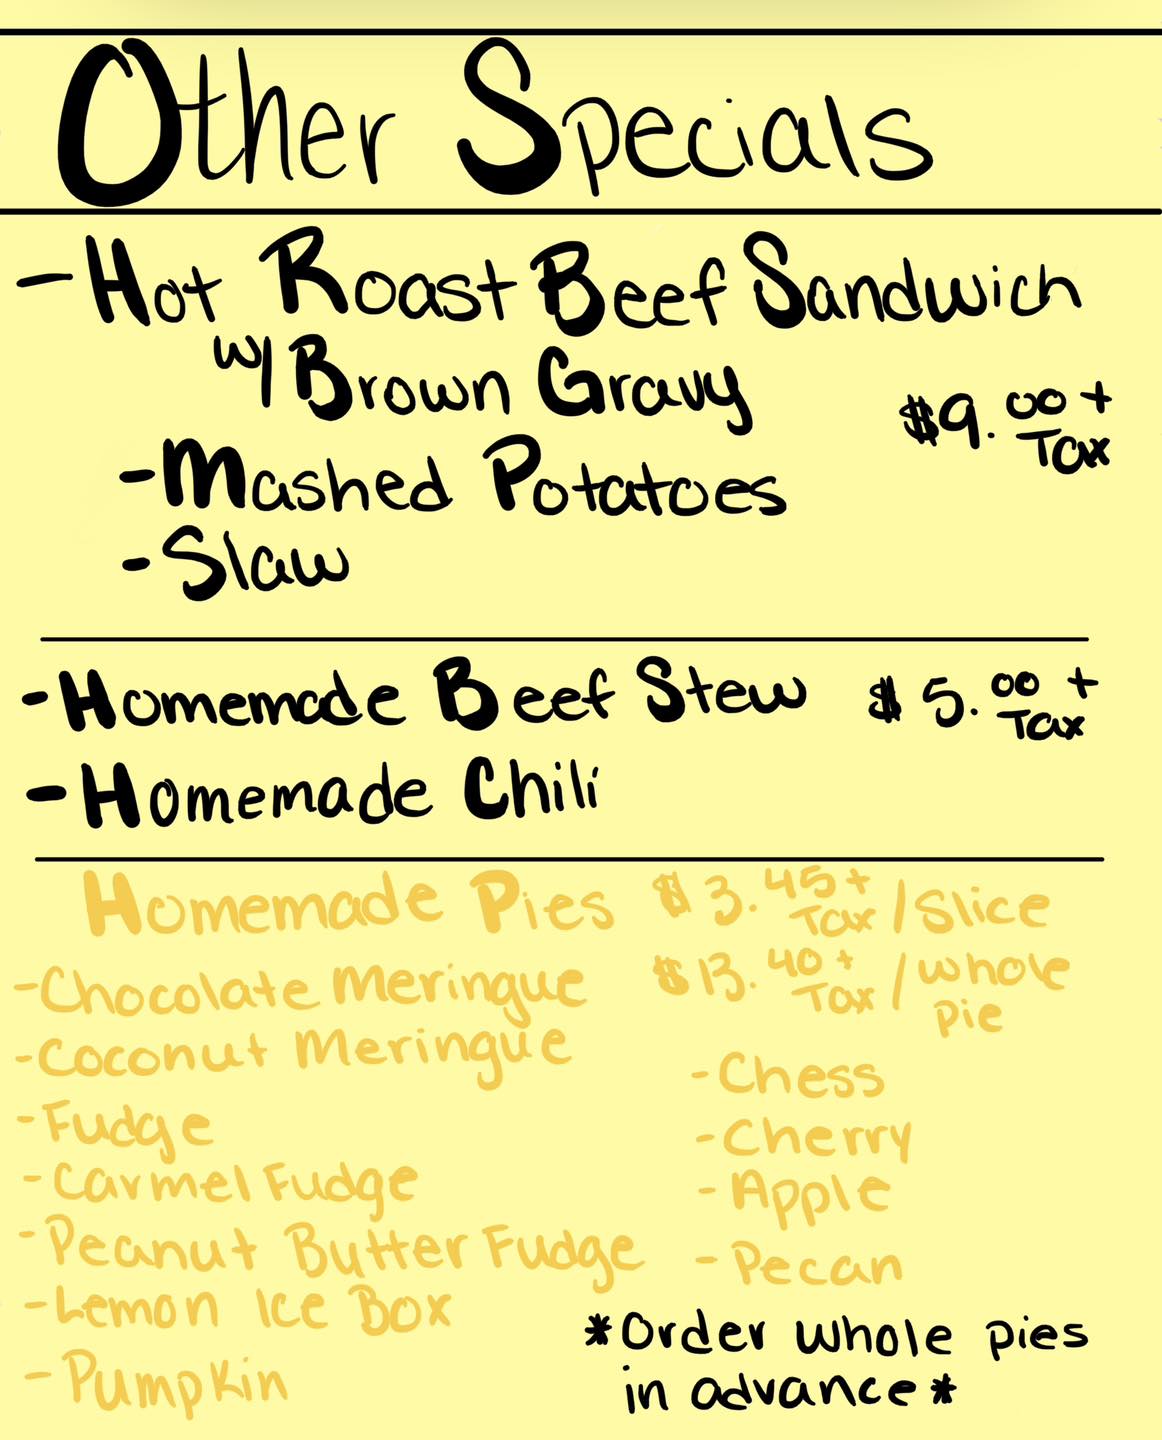 Other Specials
- Hot Roast Beef Sandwich
w/ Brown Gravy
$9.00 + Tax
- Mashed Potatoes
- Slaw
- Homemade Beef Stew $5.00 + Tax
- Homemade Chili
Homemade Pies $3.45 + Tax / Slice
$13.40 + Tax / whole pie
- Chocolate Meringue
- Coconut Meringue
- Fudge
- Carmel Fudge
- Peanut Butter Fudge
- Lemon Ice Box
- Pumpkin
- Chess
- Cherry
- Apple
- Pecan
*Order whole pies
in advance*